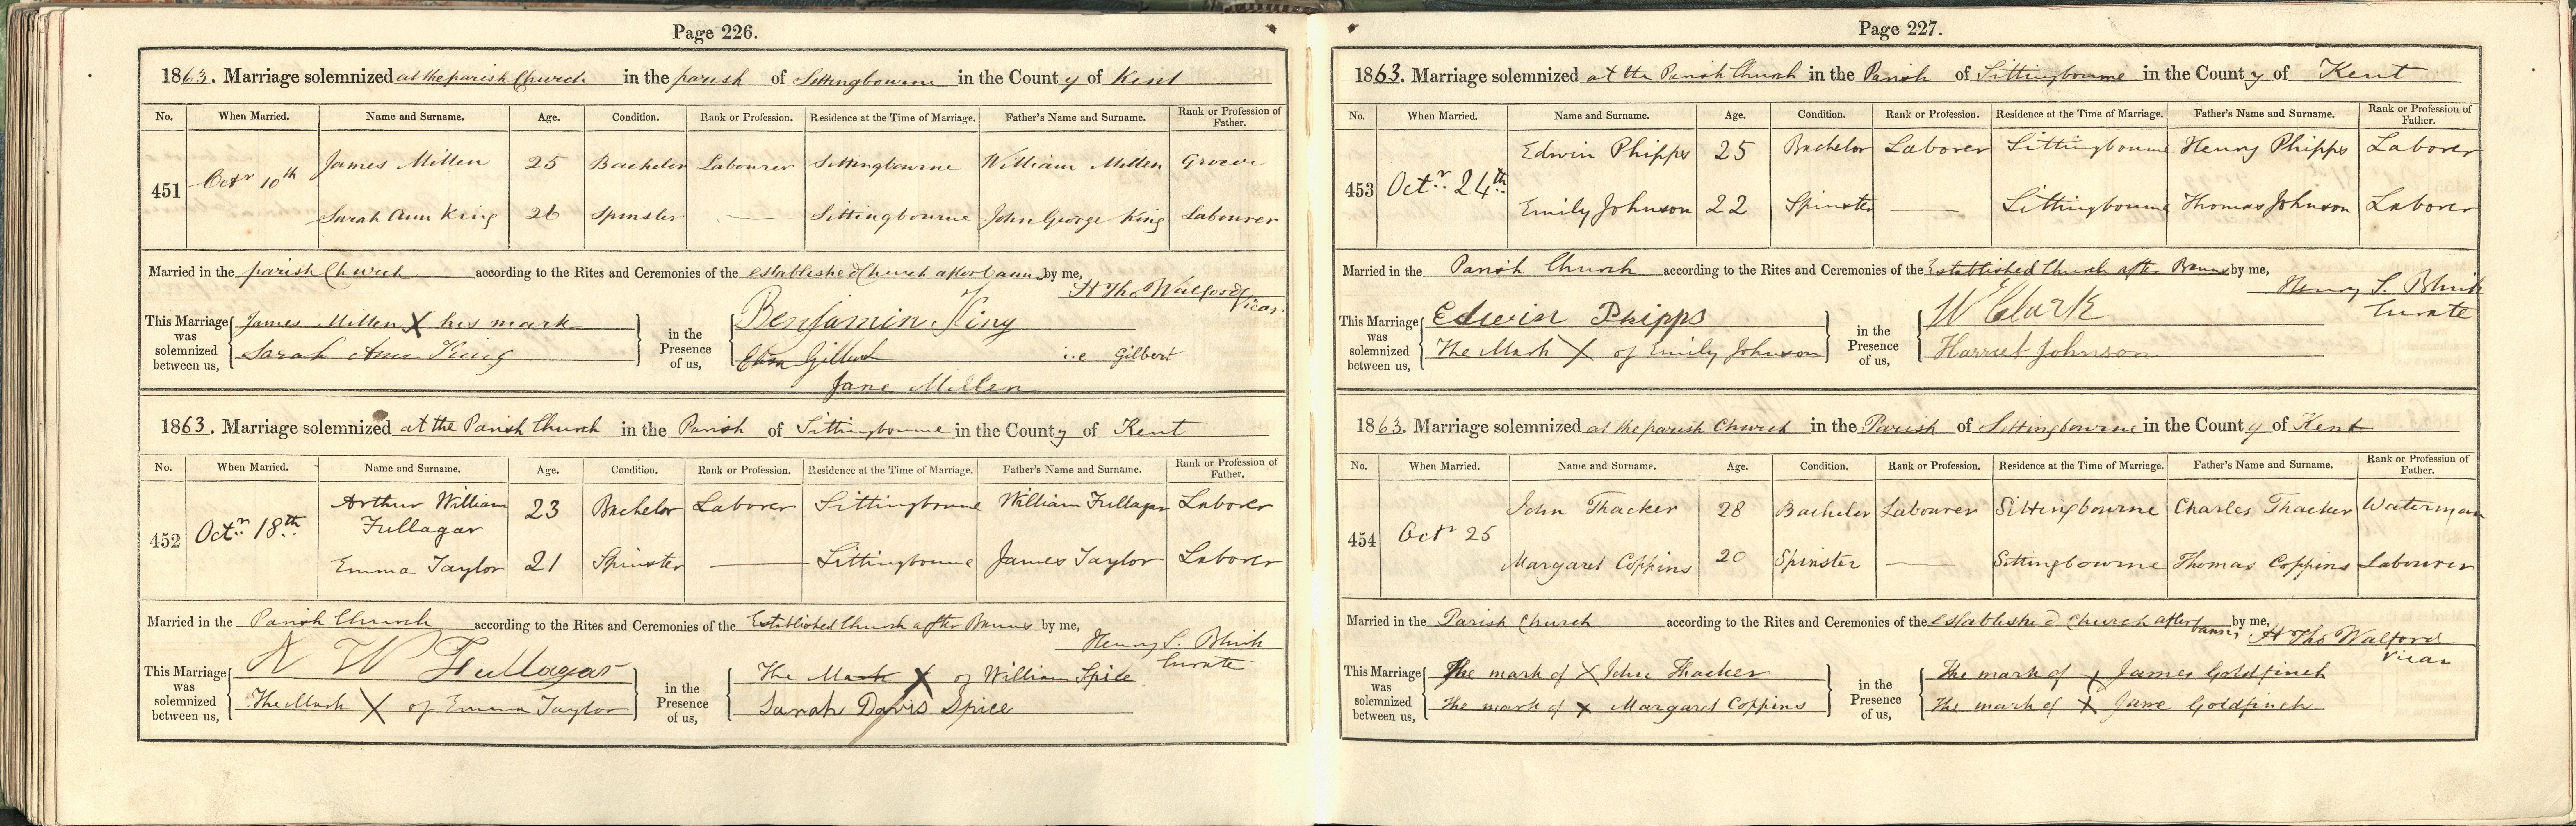 Page 226.
1863. Marriage solemnized at the parish Church in the parish of Sittingbourne in the County of Kent
No. When Married. Name and Surname. Age. Condition. Rank or Profession. Residence at the Time of Marriage. Father's Name and Surname. Rank or Profession of Father.
451 Octr 10th James Millen 25 Bachelor Labourer Sittingbourne William Millen
Sarah Ann King 26 Spinster — Sittingbourne John George King Labourer
Married in the parish Church according to the Rites and Ceremonies of the established Church after banns by me,
H Tho Walford
Vicar
This Marriage was solemnized between us, James Millen X his mark
Sarah Ann King
in the Presence of us, Benjamin King
Gilbert i.e Gilbert
Jane Millen
1863. Marriage solemnized at the Parish Church in the Parish of Sittingbourne in the County of Kent
No. When Married. Name and Surname. Age. Condition. Rank or Profession. Residence at the Time of Marriage. Father's Name and Surname. Rank or Profession of Father.
452 Octr. 18th Arthur William Fullagar 23 Bachelor Laborer Sittingbourne William Fullagar Laborer
Emma Taylor 21 Spinster — Sittingbourne James Taylor Laborer
Married in the Parish Church according to the Rites and Ceremonies of the Established Church after Banns by me,
Henry S.
Curate
This Marriage was solemnized between us, A W Fullagar
The Mark X of Emma Taylor
in the Presence of us, The Mark X of William Spice
Sarah Davis Spice
Page 227.
1863. Marriage solemnized at the Parish Church in the Parish of Sittingbourne in the County of Kent
No. When Married. Name and Surname. Age. Condition. Rank or Profession. Residence at the Time of Marriage. Father's Name and Surname. Rank or Profession of Father.
453 Octr. 24th Edwin Phipps 25 Bachelor Laborer Sittingbourne Henry Phipps Laborer
Emily Johnson 22 Spinster — Sittingbourne Thomas Johnson Laborer
Married in the Parish Church according to the Rites and Ceremonies of the Established Church after Banns by me,
Henry S.
Curate
This Marriage was solemnized between us, Edwin Phipps
The Mark X of Emily Johnson
in the Presence of us, W Clark
Harriet Johnson
1863. Marriage solemnized at the parish Church in the Parish of Sittingbourne in the County of Kent
No. When Married. Name and Surname. Age. Condition. Rank or Profession. Residence at the Time of Marriage. Father's Name and Surname. Rank or Profession of Father.
454 Octr 25 John Thacker 28 Bachelor Labourer Sittingbourne Charles Thacker Waterman
Margaret Coppins 20 Spinster — Sittingbourne Thomas Coppins Labourer
Married in the Parish Church according to the Rites and Ceremonies of the established Church after banns by me,
H Tho Walford
Vicar
This Marriage was solemnized between us, The mark of X John Thacker
The mark of X Margaret Coppins
in the Presence of us, The mark of X James Goldfinch
The mark of X Jane Goldfinch